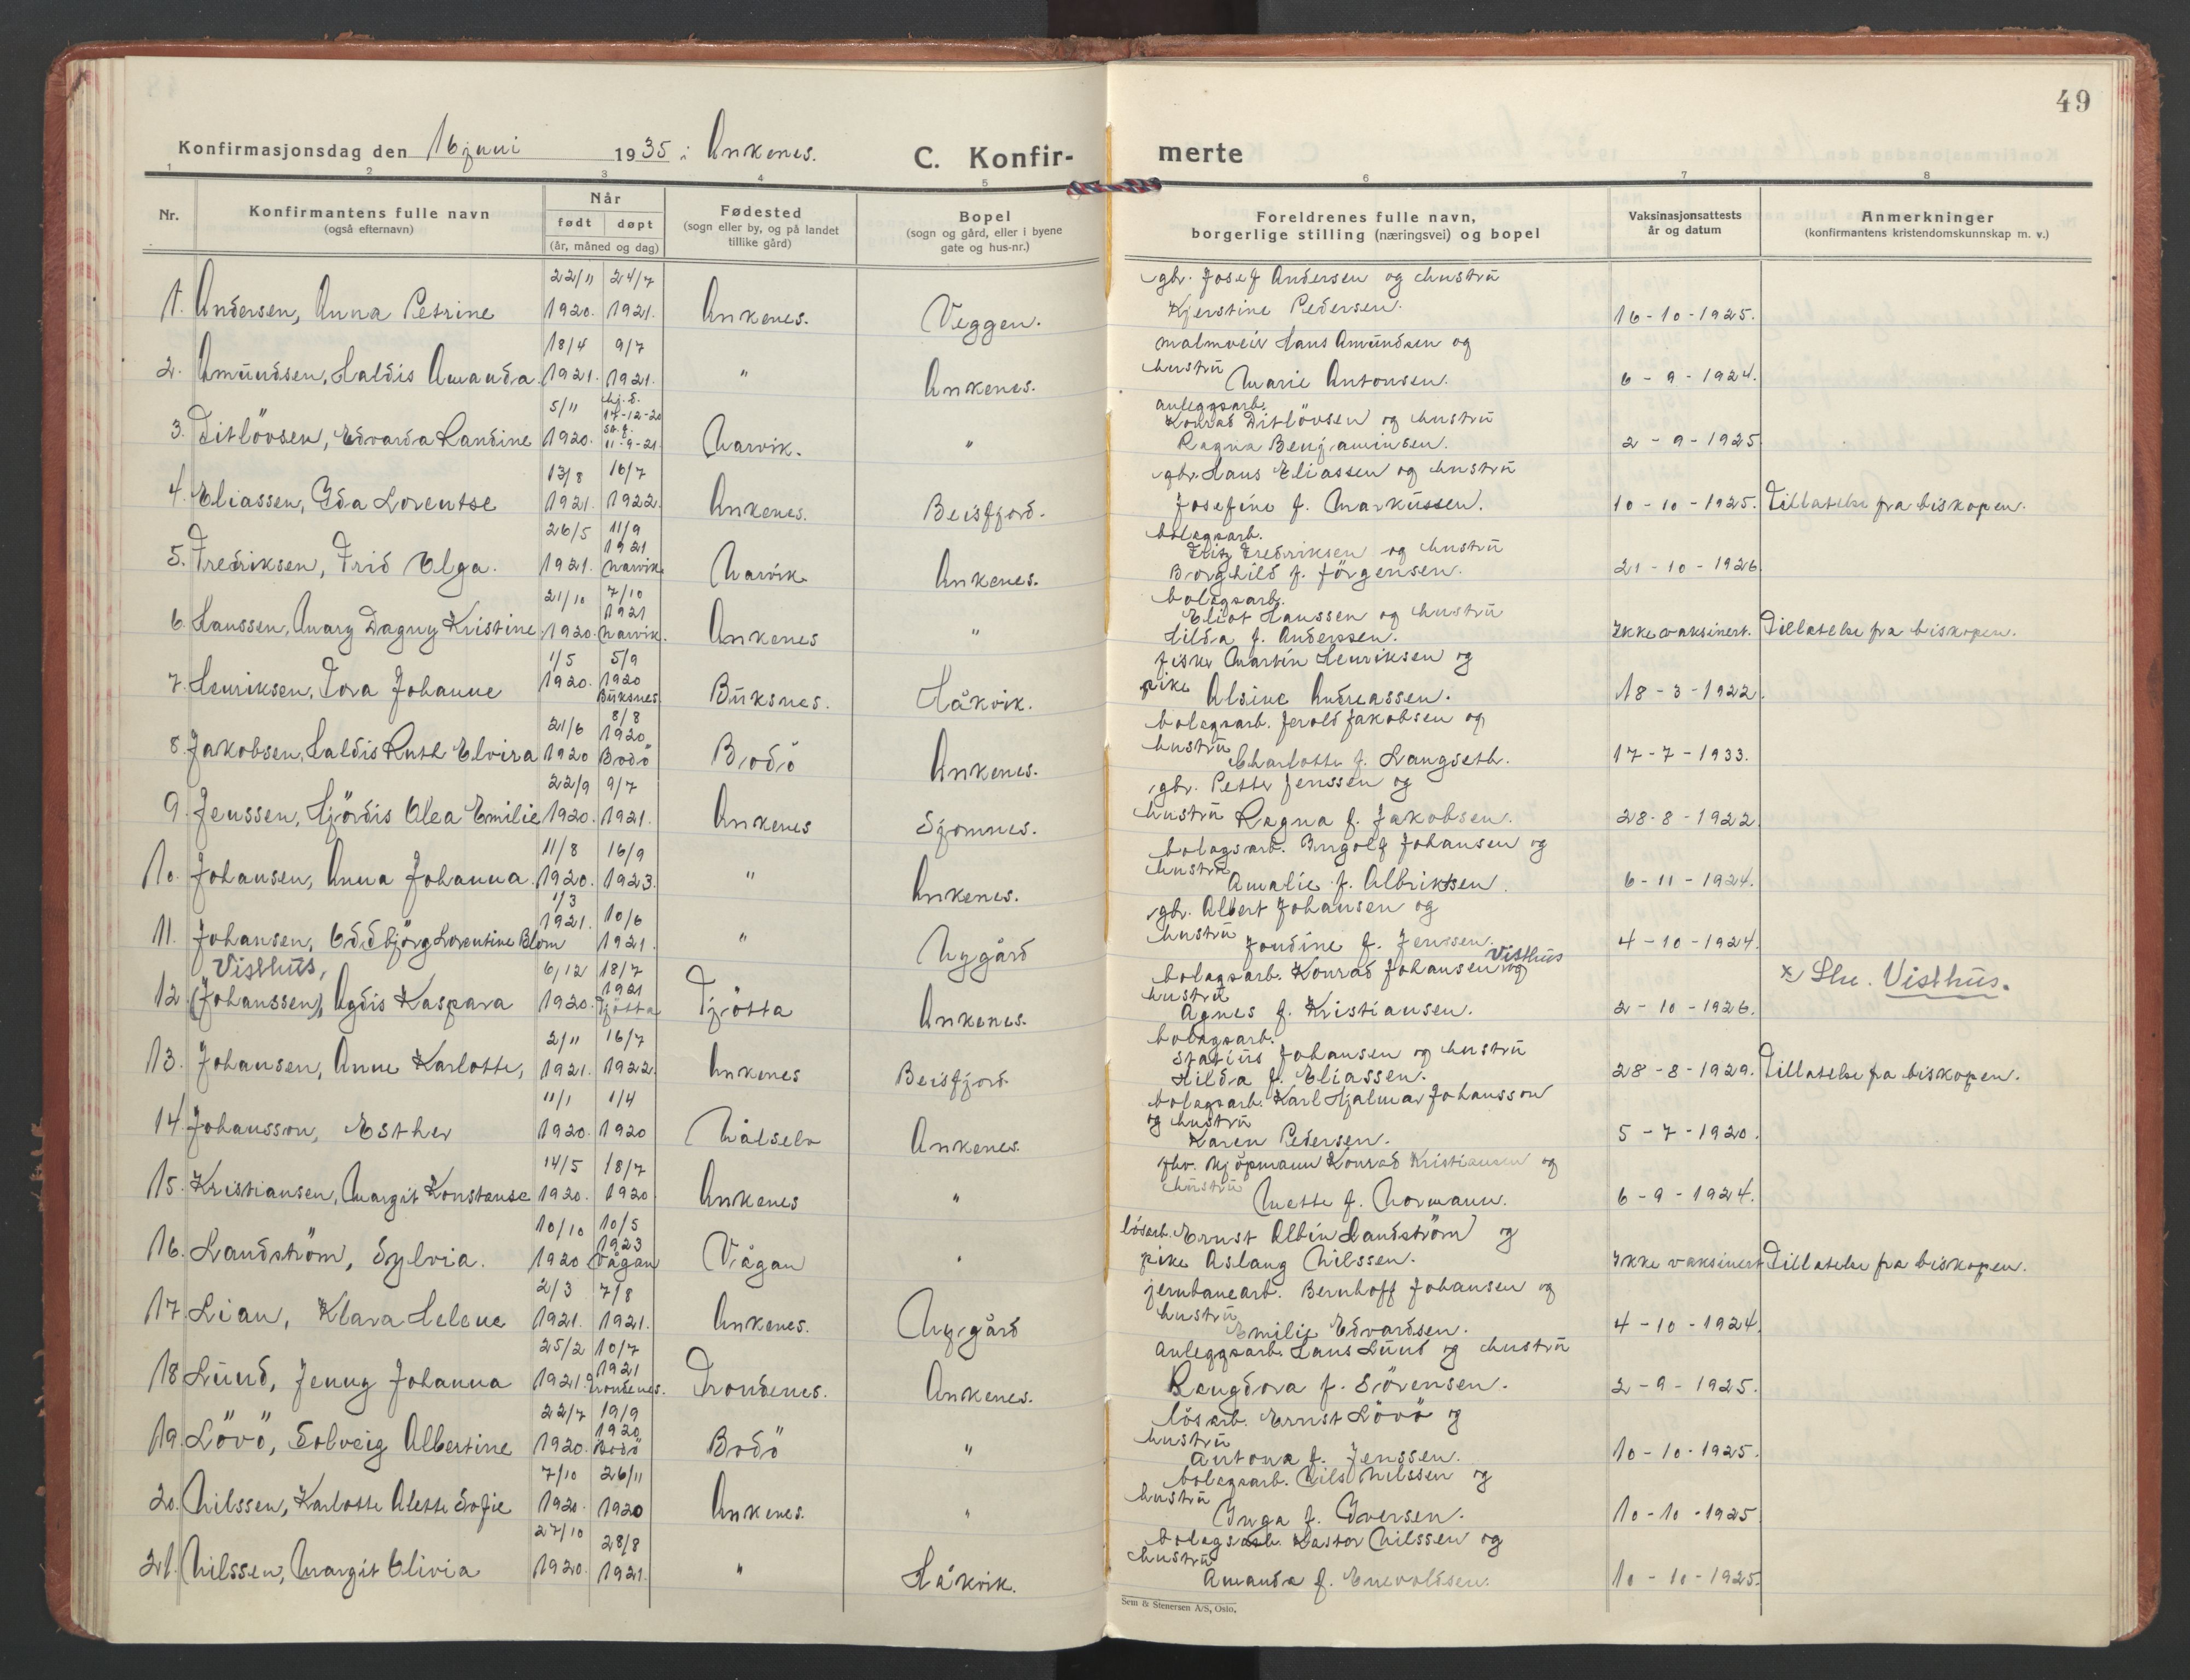 49
Konfirmasjonsdag den 16 juni 1935 i Ankenes.
C. Konfir-merte
1 2 3 4 5 6 7 8
Nr.
Konfirmantens fulle navn
(også efternavn)
Når
født døpt
(år, måned og dag)
Fødested
(sogn eller by, og på landet
tillike gård)
Bopel
(sogn og gård, eller i byene
gate og hus-nr.)
Foreldrenes fulle navn,
borgerlige stilling (næringsvei) og bopel
Vaksinasjonsattests
år og datum
Anmerkninger
(konfirmantens kristendomskunnskap m. v.)
1. Andersen, Anna Petrine 22/11 1920. 24/7 1921. Ankenes. Veggen. gbr. Josef Andersen og hustrü Kjerstine Pedersen. 16-10-1925.
2. Amündsen, Haldis Amanda. 18/4 1921. 9/7 1921. " Ankenes. malmveier Hans Amündsen og hustrü Marie Antonsen. 6-9-1924.
3. Ditlövsen, Edvarda Randine 5/11 1920. hj.d. 17-12-20 st.f. 11-9-21. Narvik. " anleggsarb. Konrad Ditlövsen og hustrü Ragna Benjaminsen. 2-9-1925
4. Eliassen, Ida Lorentse 13/8 1921. 16/7 1922. Ankenes. Beisfjord. gbr. Hans Eliassen og hustrü Josefine f. Markussen. 10-10-1925. Tillatelse fra biskopen.
5. Fredriksen, Frid Olga. 26/5 1921. 11/9 1921 Narvik. Narvik. Ankenes. bolagsarb. Fritz Fredriksen og hustrü Borghild f. Jörgensen. 21-10-1926.
6. Hanssen, Mary Dagny Kristine. 21/10 1920. 7/10 1921 Narvik. Ankenes " bolagsarb. Eliot Hanssen og hustrü Hilda f. Anderssen. Ikke vaksinert. Tillatelse fra biskopen.
7. Henriksen, Tora Johanne 1/5 1920. 5/9 1920 Büksnes. Büksnes. Håkvik. fisker Martin Henriksen og pike Alsine Andreassen. 18-3-1922.
8. Jakobsen, Haldis Ruth Elvira 21/6 1920 8/8 1920 Bodö Bodö Ankenes. bolagsarb. Jerold Jakobsen og hustrü Charlotte f. Langseth. 17-7-1933.
9. Jenssen, Hjördis Olea Emilie 22/9 1920. 9/7 1921. Ankenes Sjomnes. gbr. Petter Jenssen og hustrü Ragna f. Jakobsen. 28-8-1922.
10. Johansen, Anna Johanna. 11/8 1920. 16/9 1923. " Ankenes. bolagsarb. Ingolf Johansen og hustrü Amalie f. Albriktsen. 6-11-1924.
11. Johansen, Oddbjörg Lorentine Blom 1/3 1921. 10/6 1921. " Nygård gbr. Albert Johansen og hustrü Jondine f. Jenssen. 4-10-1924.
12. Visthüs, (Johanssen), Agdis Kaspara 6/12 1920. 18/7 1921 Tjötta Tjötta Ankenes. bolagsarb. Konrad Johansen Visthüs og hustrü Agnes f. Kristiansen. 2-10-1926. x Skr. Visthüs.
13. Johansen, Anne Karlotte, 2/11 1921. 16/7 1922. Ankenes Beisfjord. bolagsarb. Statius Johansen og hustrü Hilda f. Eliassen. 28-8-1929. Tillatelse fra biskopen.
14. Johansson, Esther 11/1 1920. 1/4 1920 Målselv Ankenes. bolagsarb. Karl Hjalmar Johansson og hustrü Karen Pedersen. 5-7-1920.
15. Kristiansen, Margit Konstanse 14/5 1920. 18/7 1920 Ankenes " fhv. kjöpmann Konrad Kristiansen og hustrü Mette f. Normann. 6-9-1924.
16. Landström, Sylvia. 10/10 1920 10/5 1923 Vågan Vågan " lösarb. Ernst Albin Landström og pike Aslaug Nilssen. Ikke vaksinert Tillatelse fra biskopen.
17. Lian, Klara Helene 2/3 1921. 7/8 1921. Ankenes. Nygård jernbanearb. Bernhoff Johansen og hustrü Emilie Edvardsen. 4-10-1924.
18. Lünd, Jenny Johanna 25/2 1921. 10/7 1921 Trondenes. Trondenes. Ankenes. Anleggsarb. Hans Lünd og hustrü Rangdora f. Sörensen. 2-9-1925.
19. Lövö, Solveig Albertine 22/7 1920. 19/9 1920 Bodö Bodö " lösarb. Ernst Lövö og hustrü Antona f. Jenssen. 10-10-1925.
20. Nilssen, Karlotte Alette Sofie 7/10 1920. 26/11 1920 Ankenes. " bolagsarb. Nils Nilssen og hustrü Inga f. Iversen. 10-10-1925
21. Nilssen, Margit Olivia 27/10 1920. 28/8 1921. " Håkvik. bolagsarb. Kastor Nilssen og hustrü Amanda f. Enevoldsen. 10-10-1925.
Sem & Stenersen A/S, Oslo.